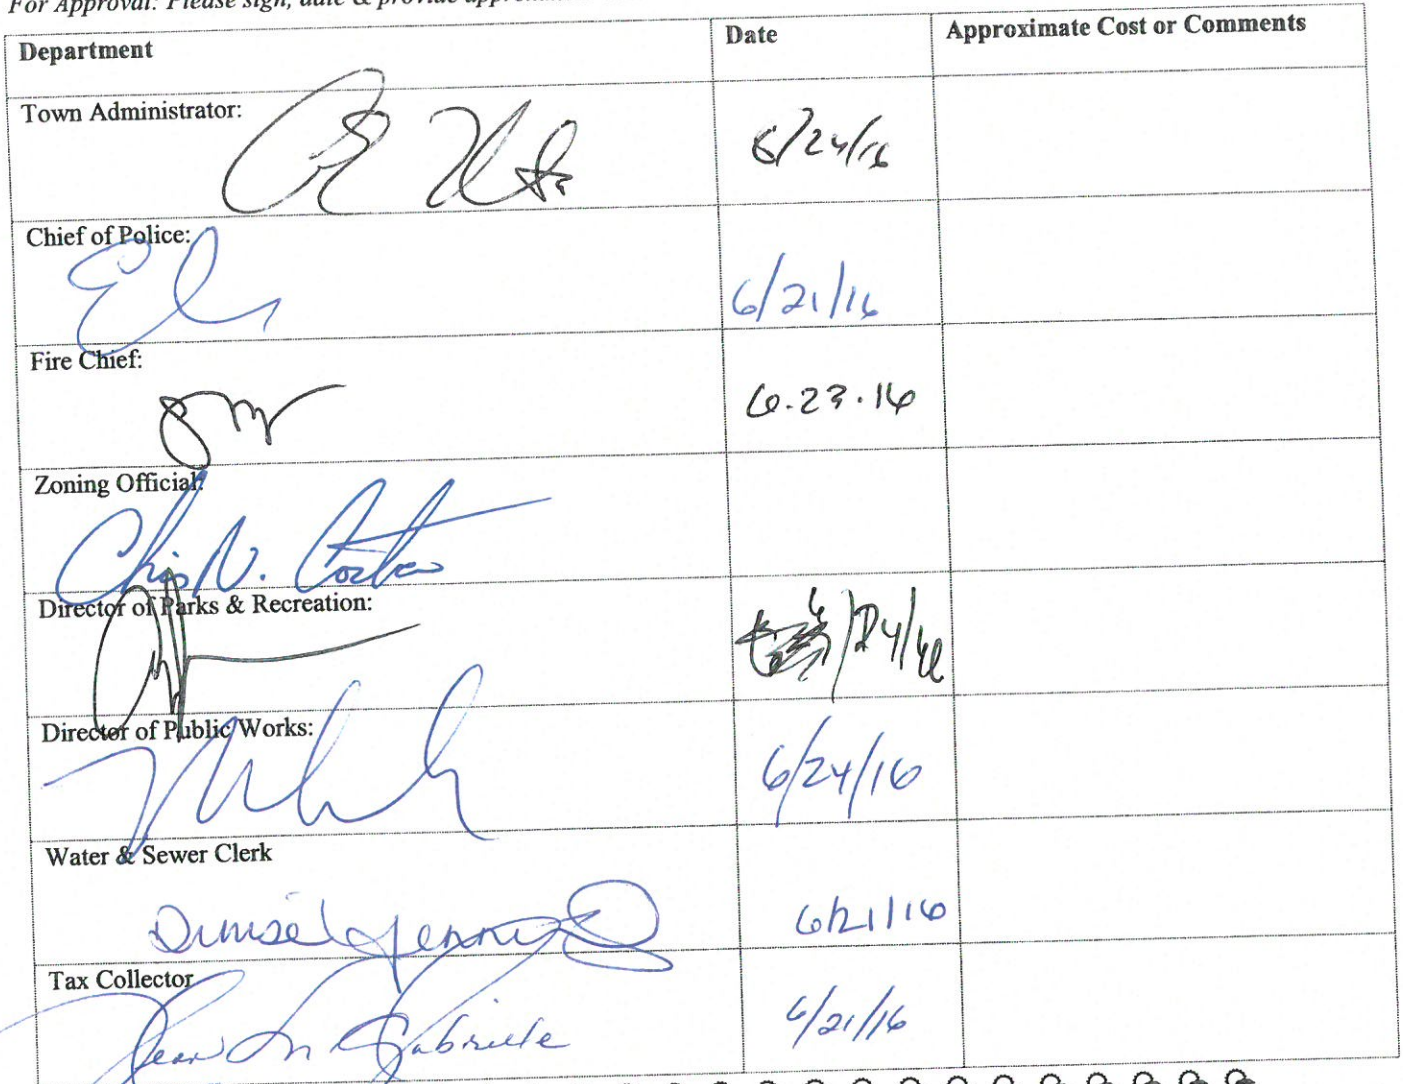 For Approval: Please sign, date & provide
Department Date Approximate Cost or Comments
Town Administrator: 6/24/16
Chief of Police: 6/21/16
Fire Chief: 6.23.16
Zoning Official:
Chris N. Costa
Director of Parks & Recreation: 6/24/16
Director of Public Works: 6/24/16
Water & Sewer Clerk
Denise 6/21/16
Tax Collector
Jean M. Gabriele 6/21/16